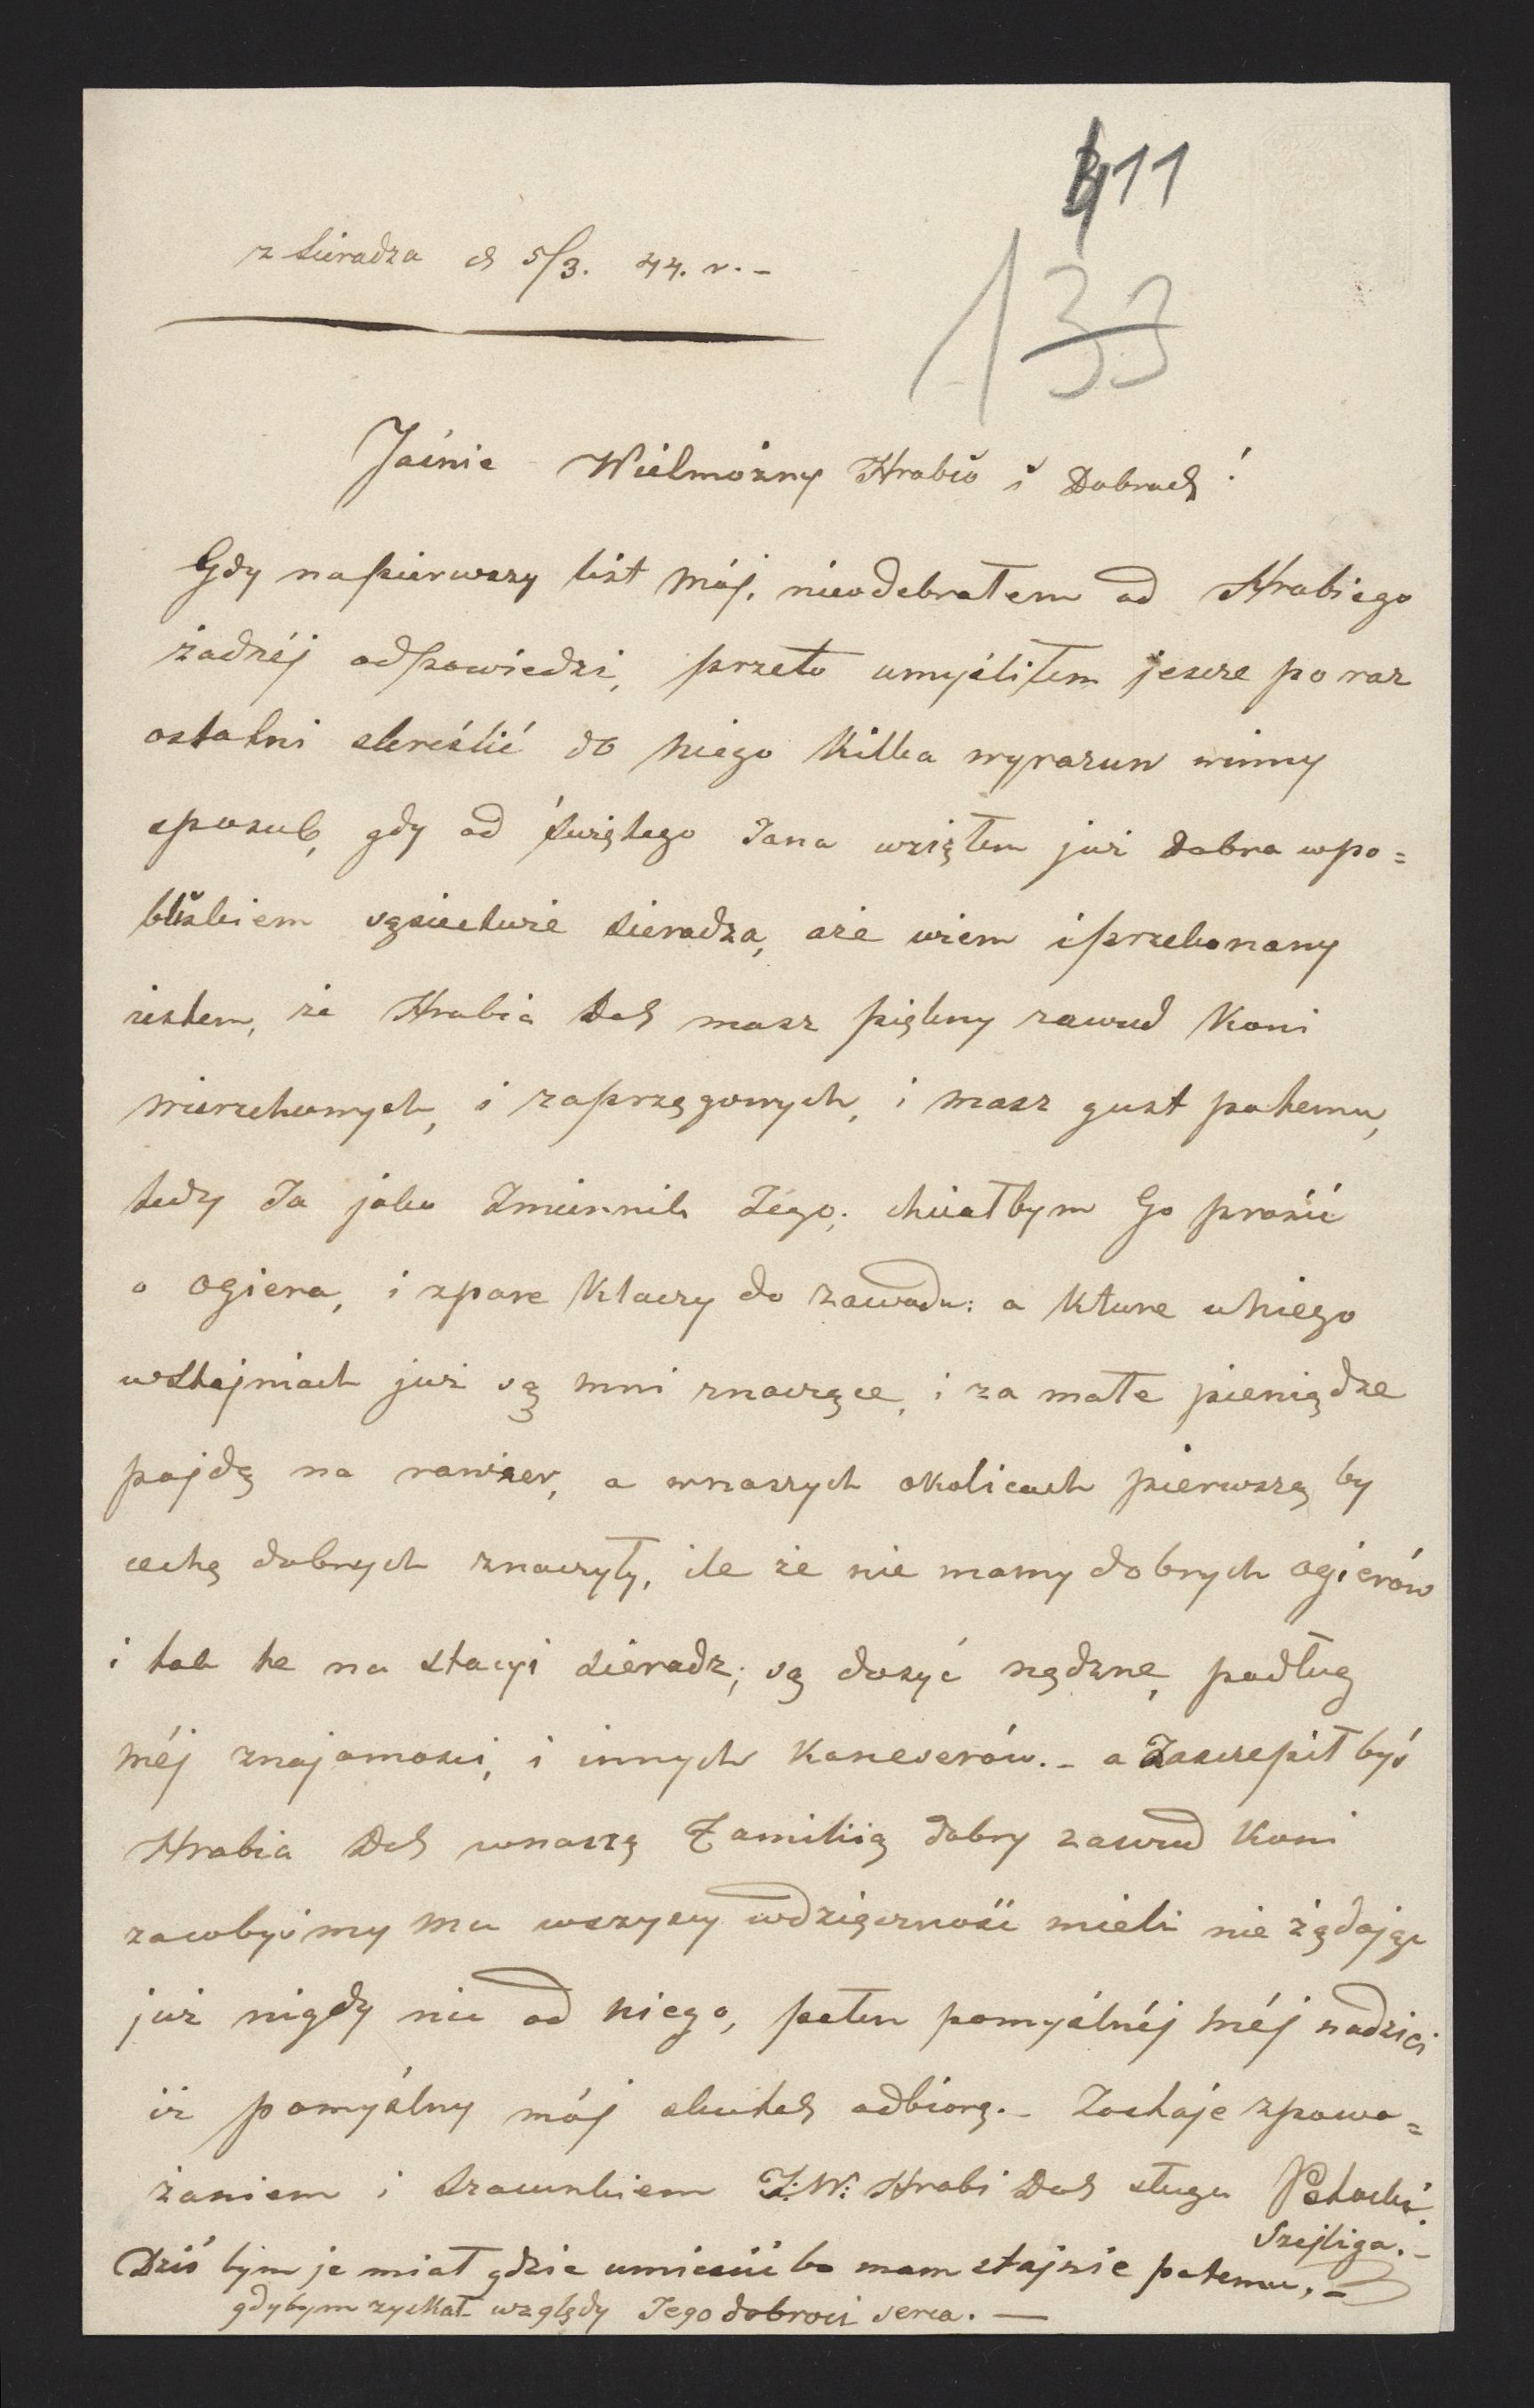 11
133
z Sieradza d 5/3. 44. r. -
Jaśnie Wielmożny Hrabio i Dobrodz !
Gdy napierwszy list mój, nieodebrałem od Hrabiego
żadnéj odpowiedzi, przeto umyśliłem jescze po raz
ostatni skreślić do niego kilka wyrazuw winny
sposub, gdy od świętego Jana wziąłem już dobra wpo=
bliskiem sąsiectwie Sieradza, aże wiem iprzekonany
iestem, że Hrabia Dob masz piękny zawud koni
wierzchowych, i zaprzęgowych, i masz gust potemu,
tedy Ja jako Imiennik Jego, chciałbym Go prosić
o ogiera, i zpare klaczy do zawodu: a kture uniego
wstajniach już są mni znaczące, i za małe pieniądze
pojdą na rawizer, a wnaszych okolicach pierwszą by
cechą dobrych znaczyły, ile że nie mamy dobrych ogierów
i tak te na stacyi Sieradz; są dosyć nędzne, podług
méj znajomosci, i innych koneserów. - a Zasczepił byś
Hrabia Dob wnaszą Familiią dobry zawud koni
zacobyśmy mu wszyscy wdzięczność mieli nie żądając
już nigdy nic od niego, pełen pomyślnéj méj nadziei
iż pomyślny mój skutek odbiorę. - Zostaje zpowa=
żaniem i Szacunkiem J: W: Hrabi Dob sługa Potocki
Szejliga. -
Dziś bym je miał gdzie umieścić bo mam stajnie potemu, -
gdybym zyskał względy Jego dobroci serca. —